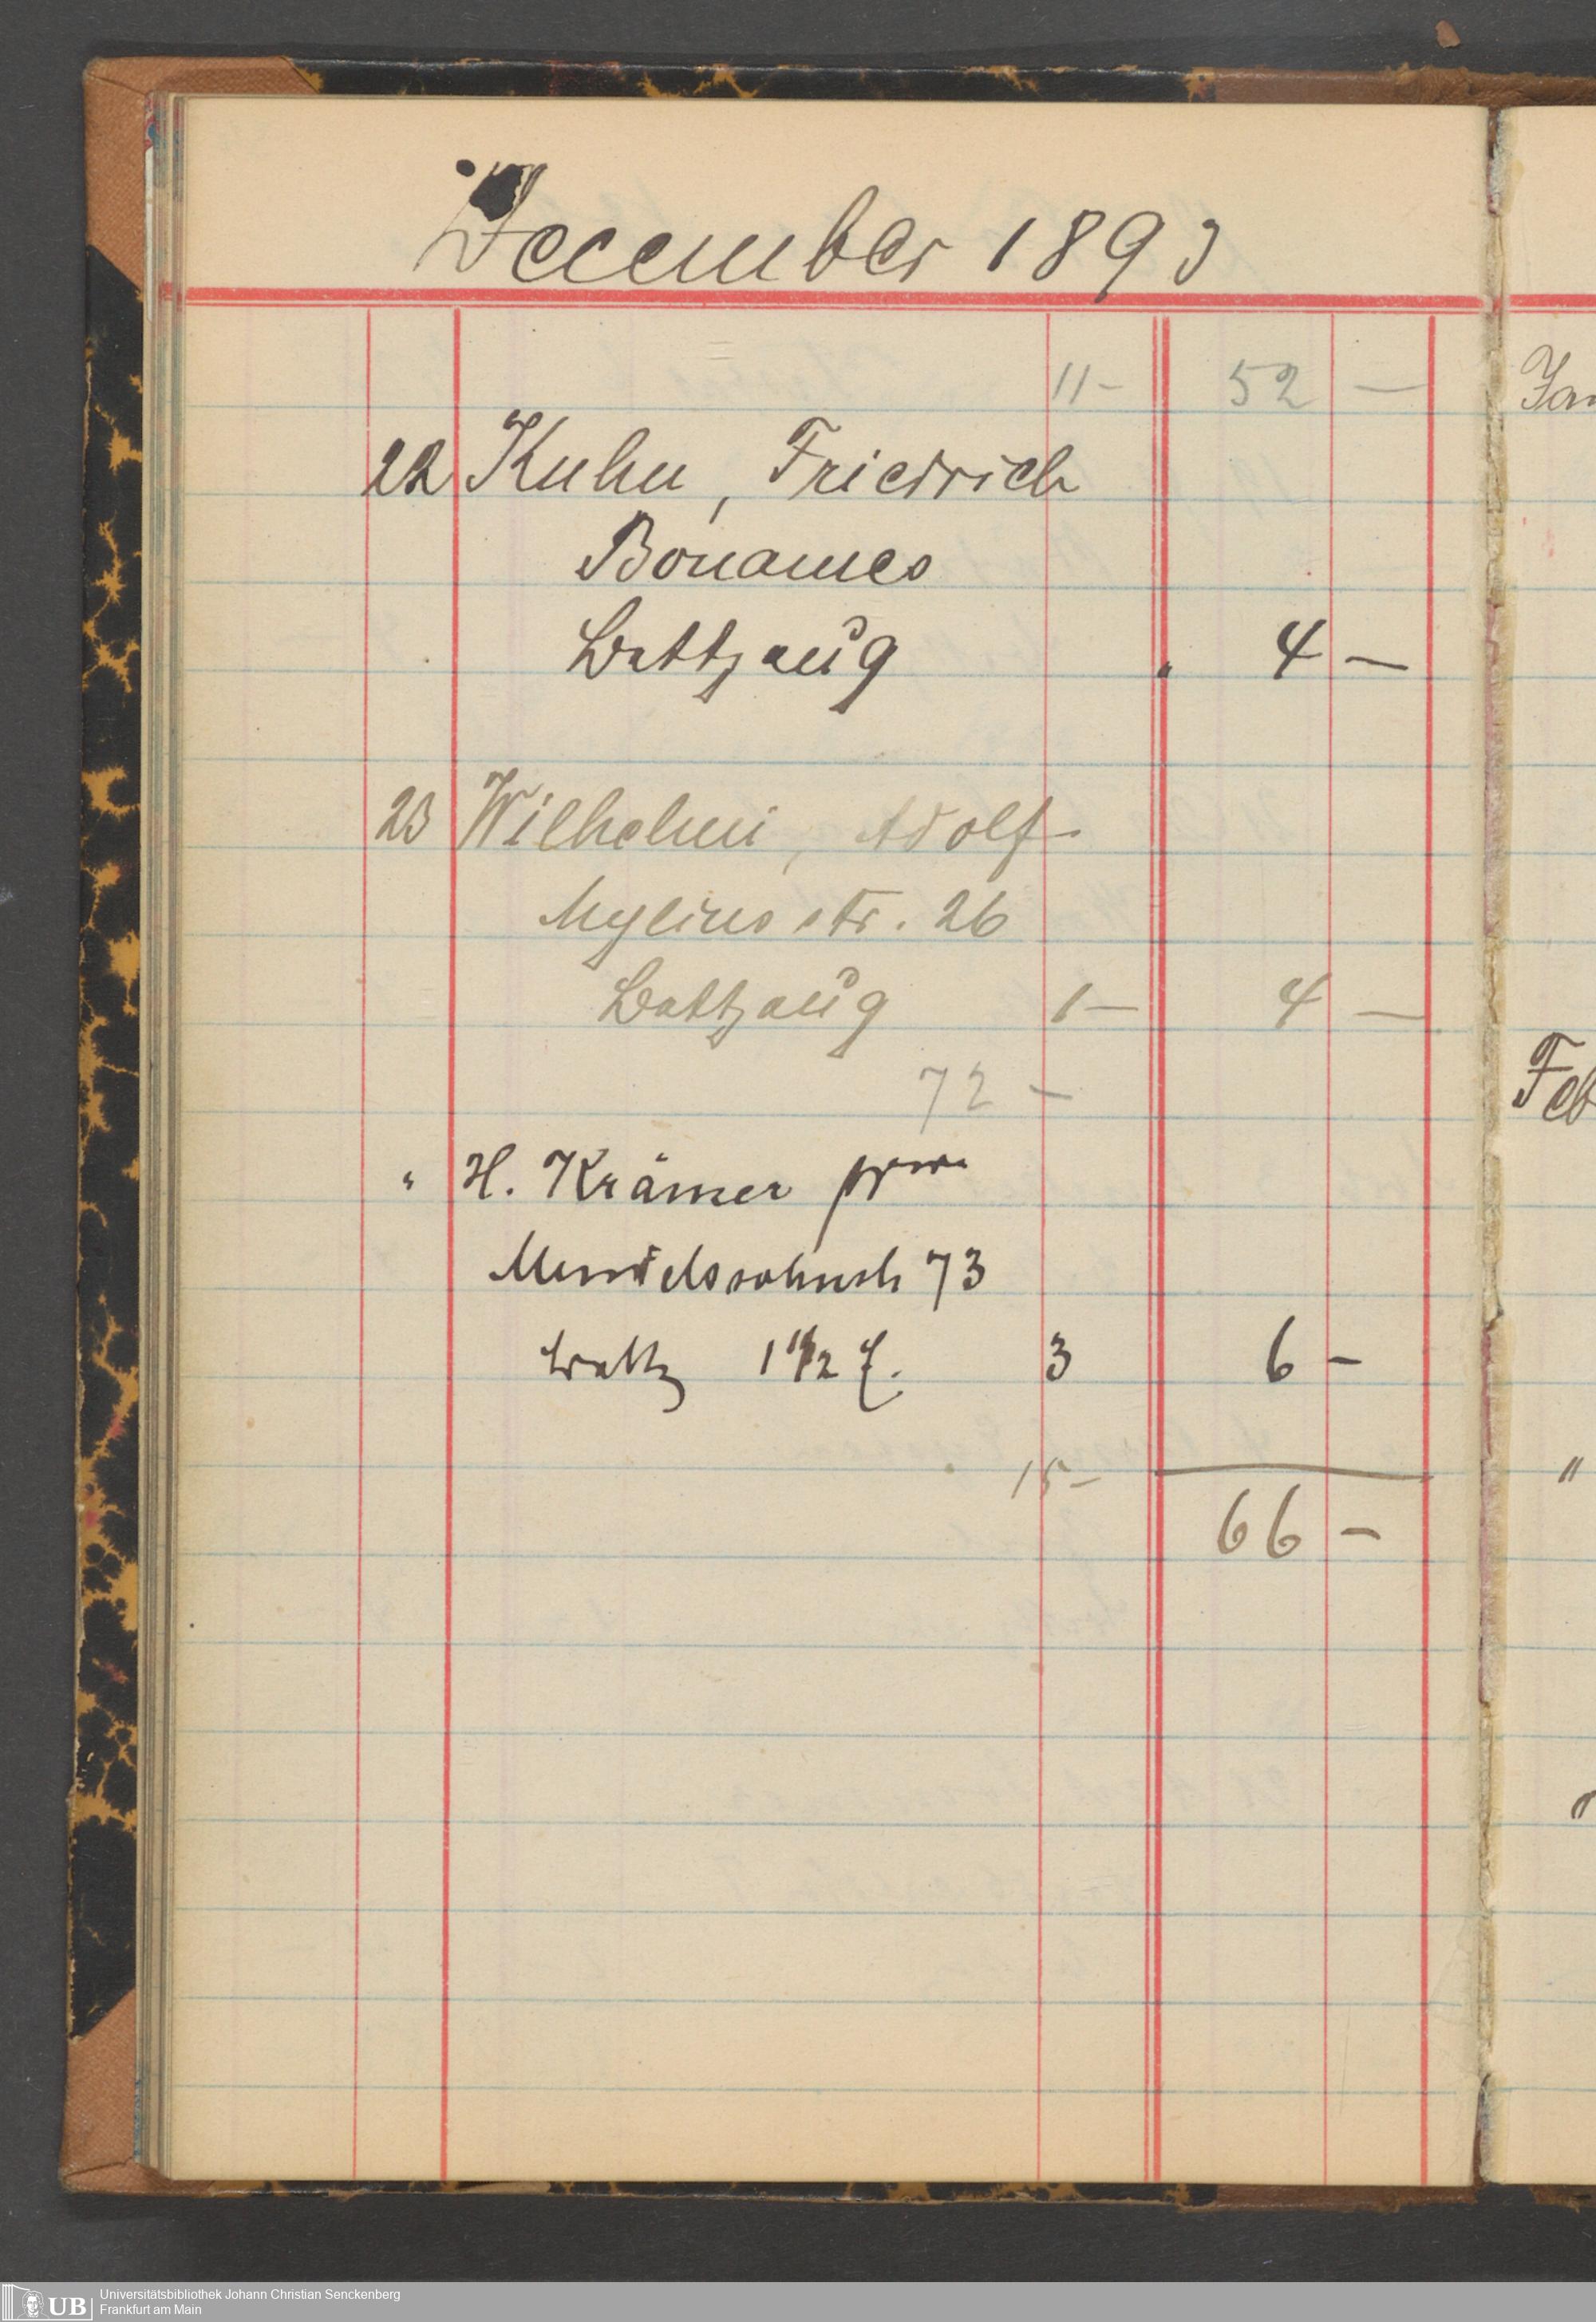 December 1893
11 - 52 -
22 Kuhn, Friedrich
Bonames
Lattzaug " 4 -
23 Wilhelmi, Adolf
Myliusstr. 26
1 - 4 -
72 -
" H. Krämer
Mendelssohnstr 73
1 1/2 3 6 -
15 -
66 -
Jan
Feb
"
"
UB Universitätsbibliothek Johann Christian Senckenberg
Frankfurt am Main